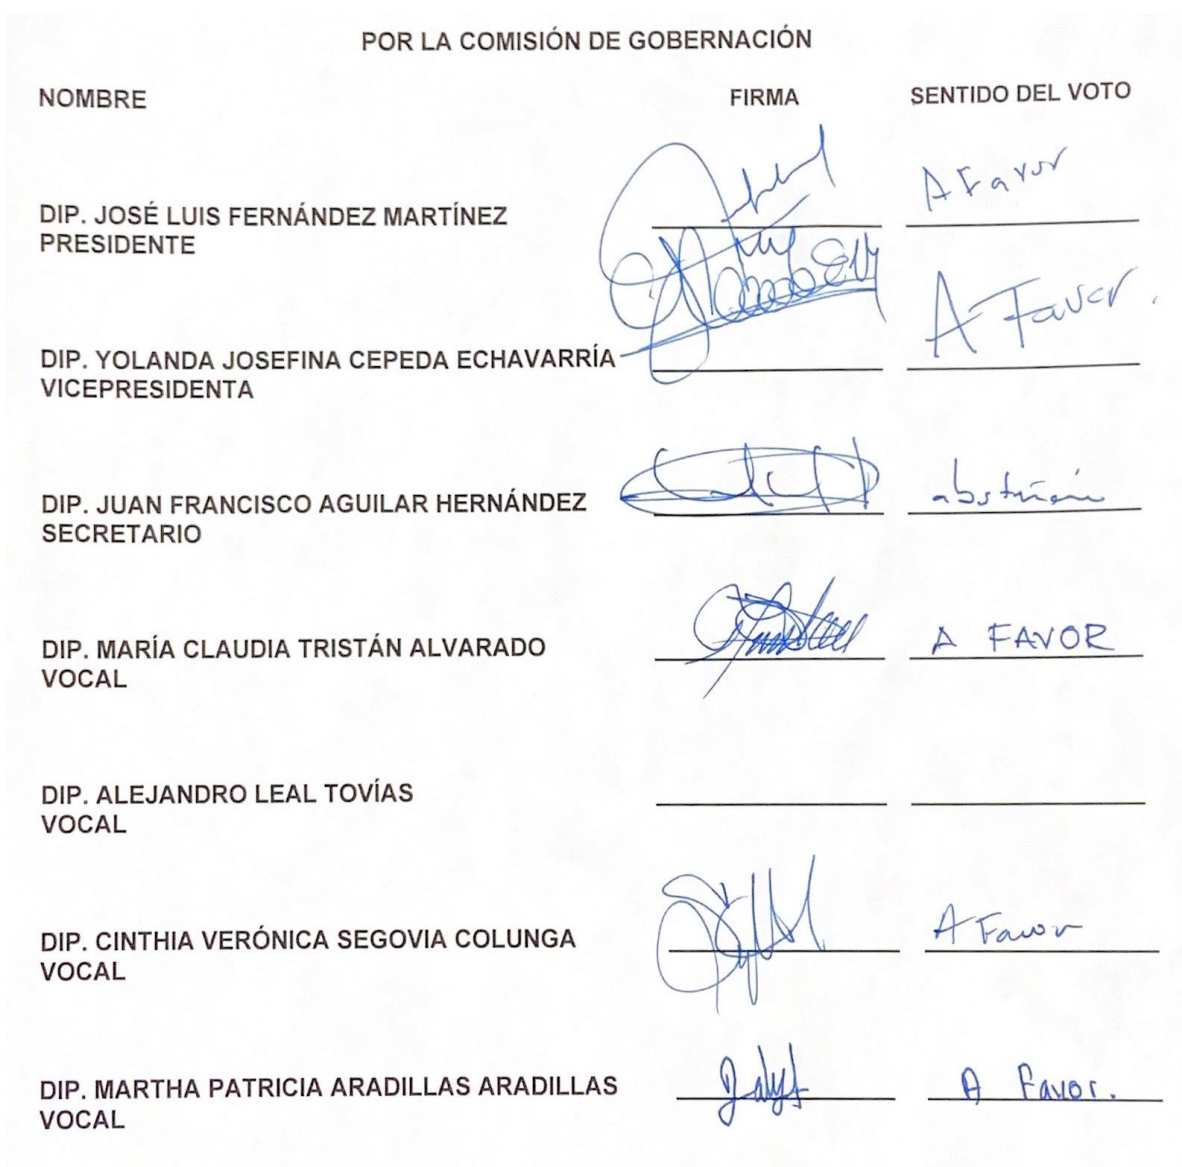 POR LA COMISIÓN DE GOBERNACIÓN
NOMBRE FIRMA SENTIDO DEL VOTO
A Favor
DIP. JOSÉ LUIS FERNÁNDEZ MARTÍNEZ
PRESIDENTE
A Favor.
DIP. YOLANDA JOSEFINA CEPEDA ECHAVARRÍA
VICEPRESIDENTA
DIP. JUAN FRANCISCO AGUILAR HERNÁNDEZ
SECRETARIO
DIP. MARÍA CLAUDIA TRISTÁN ALVARADO A FAVOR
VOCAL
DIP. ALEJANDRO LEAL TOVÍAS
VOCAL
DIP. CINTHIA VERÓNICA SEGOVIA COLUNGA A Favor
VOCAL
DIP. MARTHA PATRICIA ARADILLAS ARADILLAS A Favor.
VOCAL